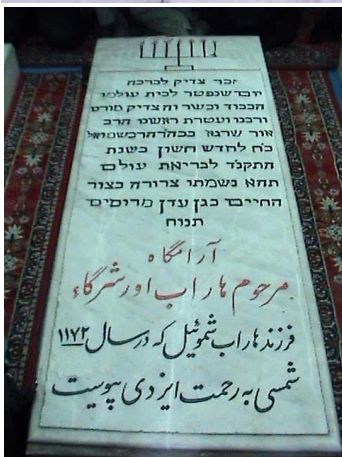 זכר צדיק לברכה
יום שנפטר לבית עולמו
הכבוד וכשר וה צדיק מורט
ורבנו ועטרת ראשנו הרב
אור שרגא בכהר הר בשמואל
כ״ח לחדש חשון בשנת
התקנד לבריאת עולם
תהא נשמתו צרורה בצור
החיים בגן עדן מרומים
תנוח
آرامگاه
مرحوم هاراب اور شرگاء
فرزند هاراب شموئیل که در سال ۱۱۷۲
شمسی به رحمت ایزدی پیوست